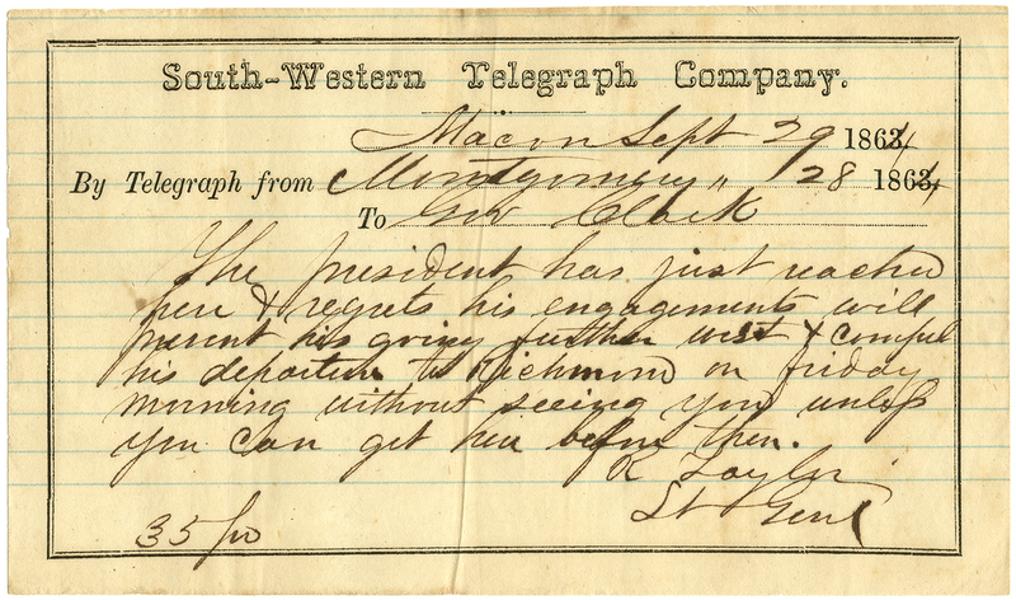 South-Western Telegraph Company.
Macon Sept 29 1864
By Telegraph from Montgomery " 28 1864
To Gov Clark
The president has just reached
here & regrets his engagements will
prevent his going further west & compel
his departure to Richmond on friday
morning without seeing you unless
you can get here before then.
R Taylor
Lt Genl
35